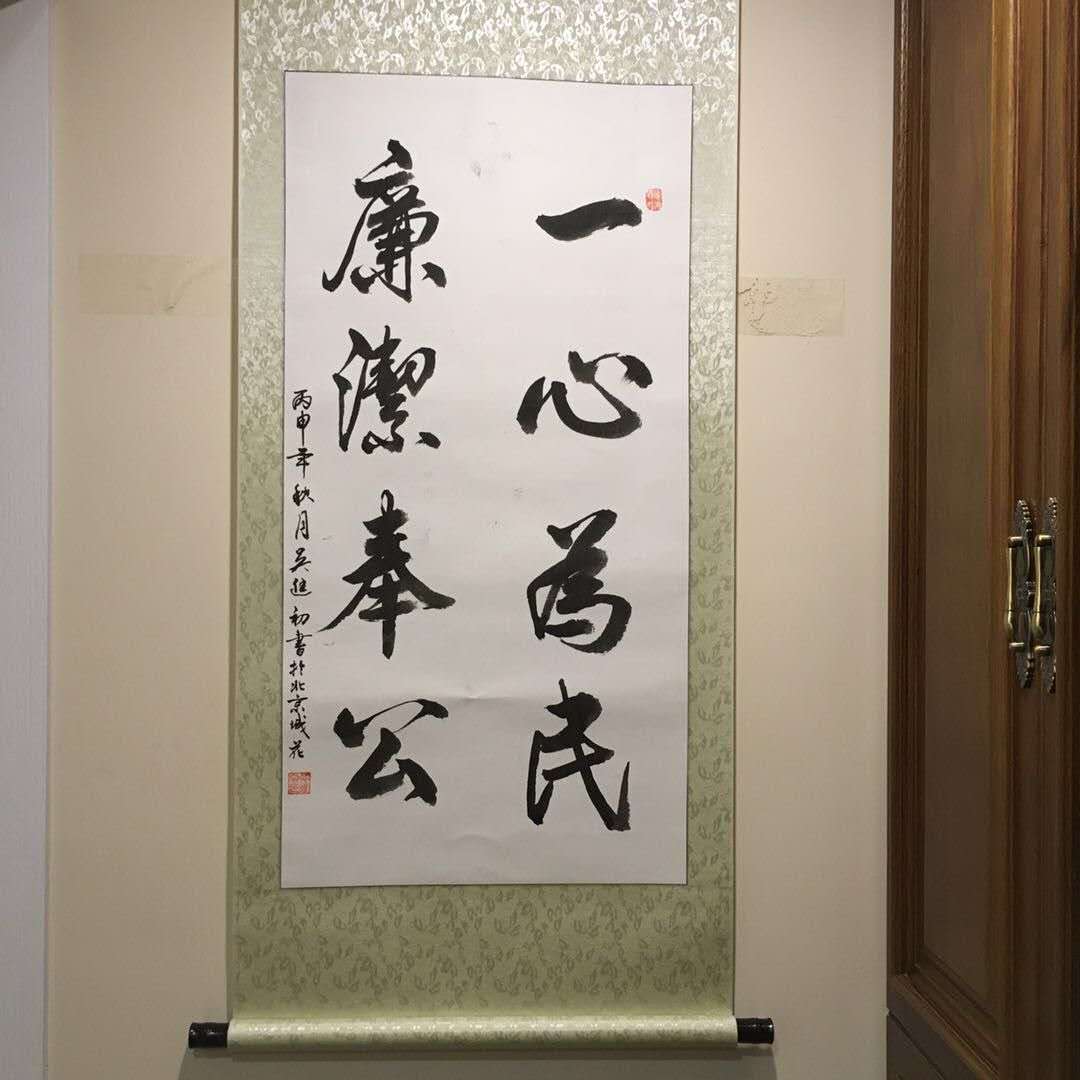 一心為民
廉潔奉公
丙申年秋月吴進初書於北京城花